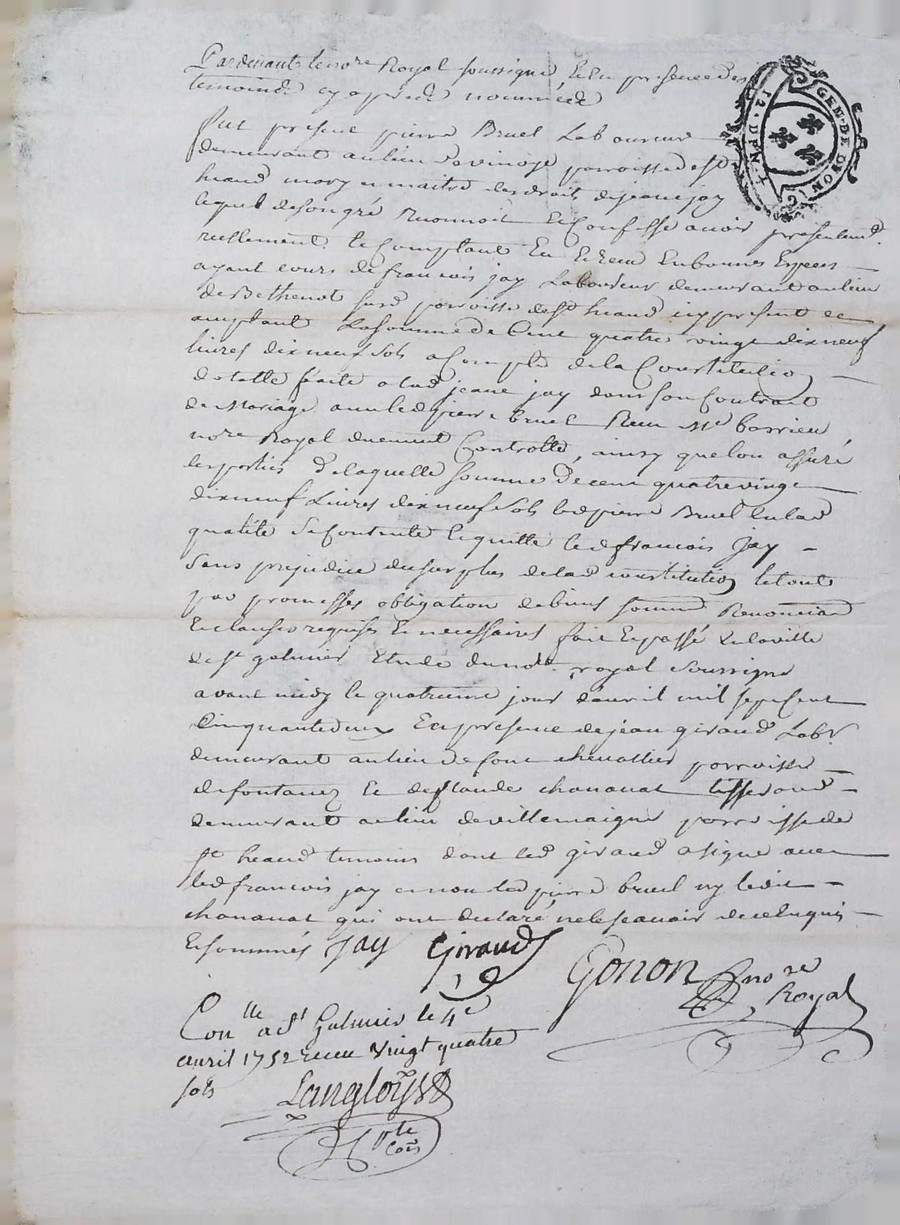 Pardevant le no.re Royal soussigné et en presence des
temoins cy apres nommés
fut present pierre Bruel Laboureur
demeurant au lieu parroisse de st
heand mary et maitre des droits de jeane jay
lequel de son gré Reconnoit et Confesse avoir presentemt.
reellement et Comptant Eu et Receu En bonnes Especes
ayant cours de francois jay Laboureur demeurant au lieu
de Bethenot susd parroisse de st heand icy present et
acceptant La somme de Cent quatre vingt dix neuf
livres dix neuf sols a Compte de la Constitution
dotalle faite a lad jeane jay dans son Contrat
de Mariage avec led pierre bruel Receu Me barrieu
nore Royal duement Controllé, ainsy que lon assuré
les parties de laquelle somme de cent quatre vingt
dix neuf Livres dix neuf sols led pierre Bruel en lad
qualité se contente et quitte led francois Jay
Sans prejudice du surplus de lad constitution le tout
par promesses obligation de biens soumn Renonciaōn
et clauses requises et necessaires fait et passé en la ville
de st galmier Etude du nore royal soussigné
avant midy le quatrieme jour davril mil sept cent
Cinquante deux En presence de jean giraud Labr.
demeurant au lieu de font chevallier parroisse
de fontanez et de claude chananat tisserand
demeurant au lieu de villemaigne parroisse de
st heand temoins dont led giraud a signé avec
led francois jay et non led pierre bruel ny ledit
chananat qui ont declaré ne le scavoir de ce enquis
et sommés Jay Giraud
Gonon nore
Royal
Conlle a st Galmier le 4e
avril 1752 receu vingt quatre
sols
Langloys
GEN. DE LYON